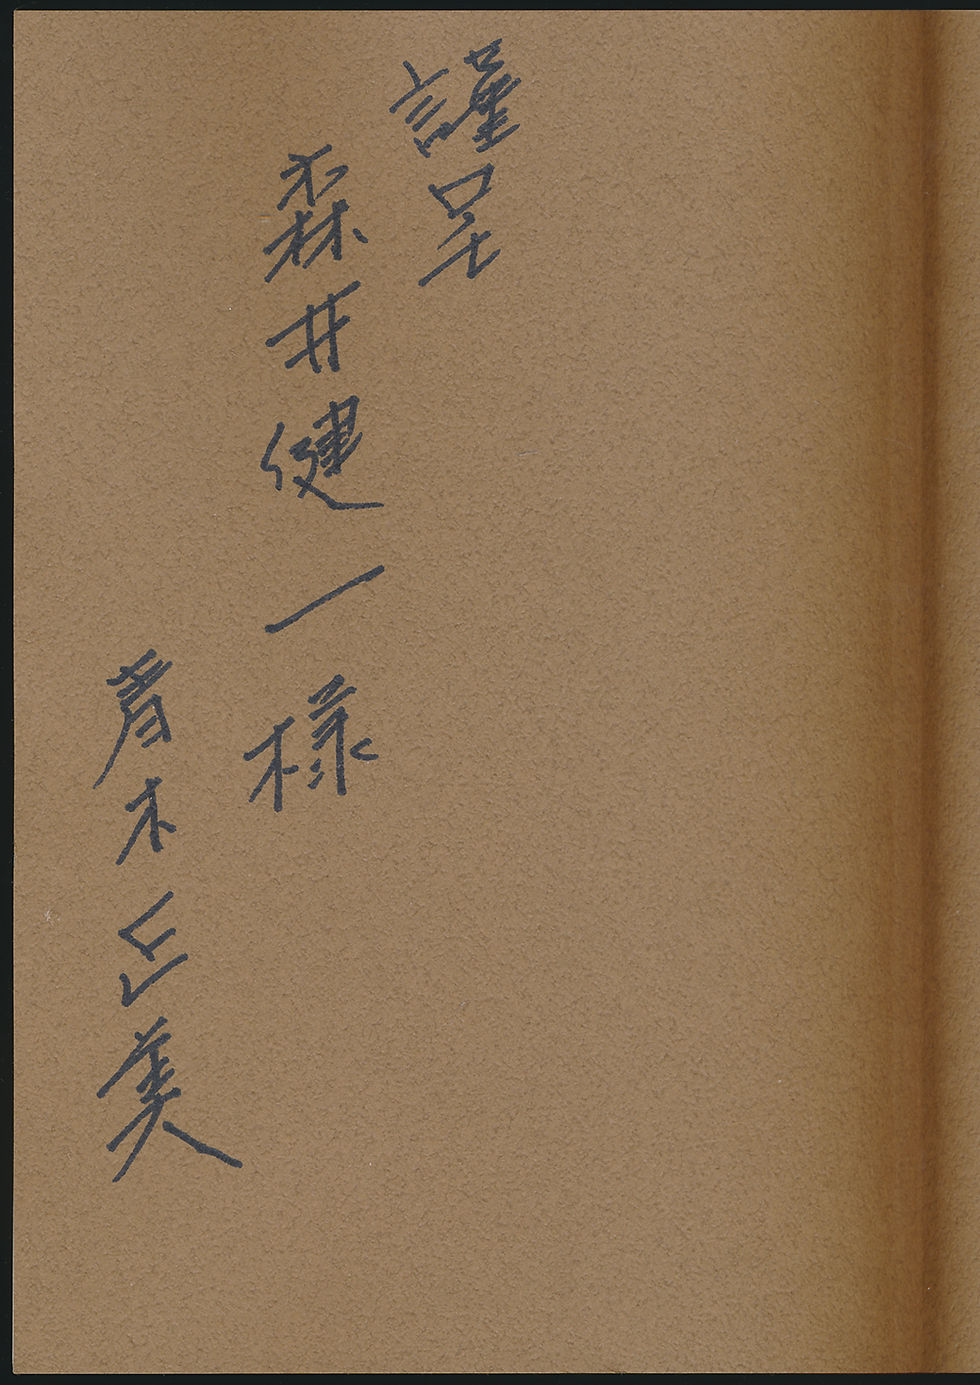 謹呈
森井健一様
青木正美